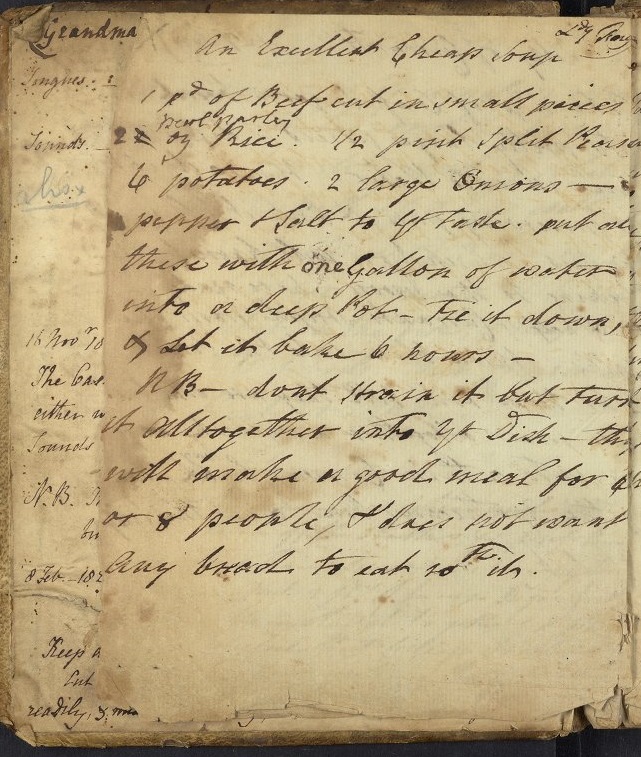 Grandma
Tongues.
Sounds.
16 Novr 18
The Cas
either w
Sounds
N.B.
8 Feb - 182
Keep a
Cut
readily, &
Ldy
An Excellent Cheap Soup
1 pd of Beef cut in small pieces
Pearl Barley
2 oz Rice. 1/2 pint Split Pease
6 potatoes. 2 large Onions —
pepper & Salt to yr Taste. put all
these with one Gallon of water
into a deep Pot - tie it down,
& Let it bake 6 hours —
NB - dont strain it but turn
it alltogether into yr Dish - this
will make a good meal for
or 8 people, & does not want
any bread to eat wth it.